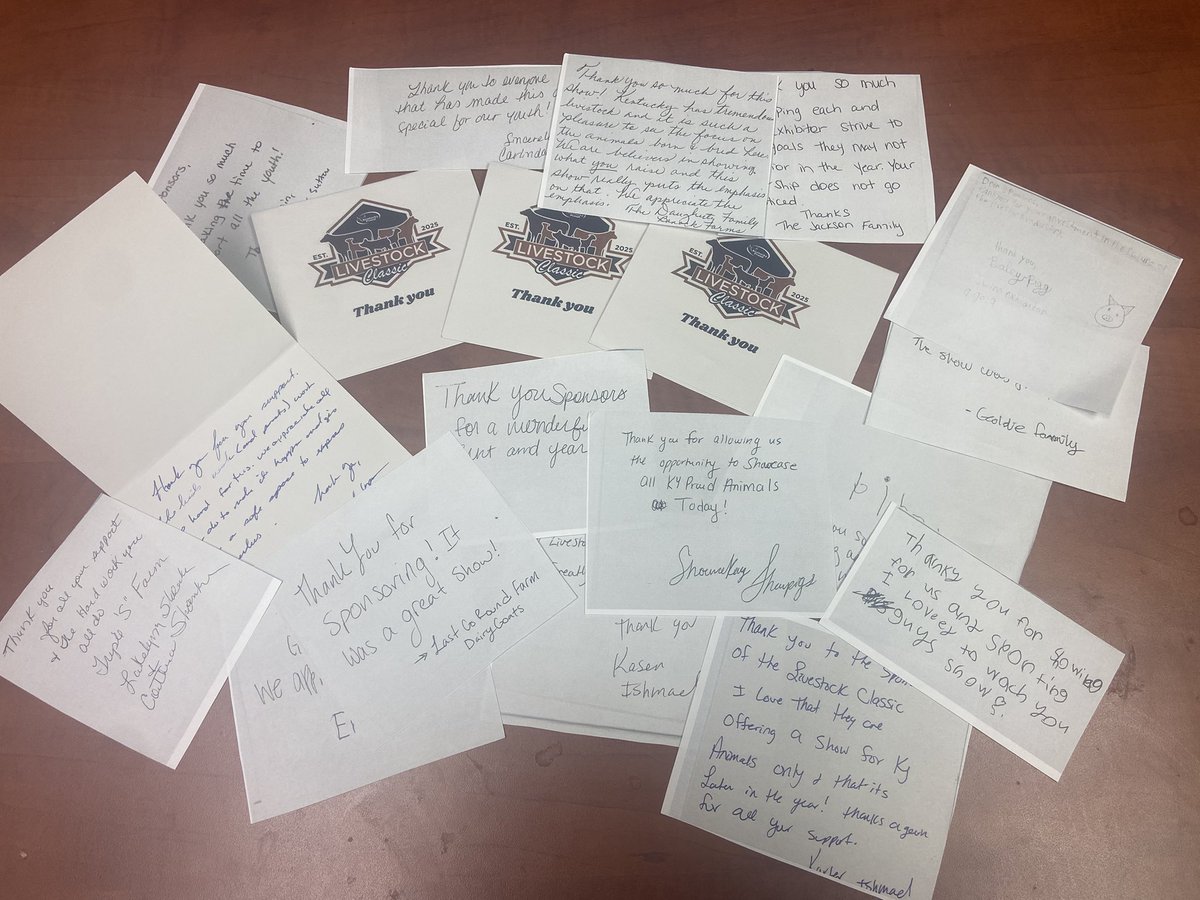 Thank you to everyone
that has made this
special for our youth!
Sincerel
Carinda
Thank you so much for this
show! Kentucky has tremendou
livestock and it is such a
pleasure to see the focus on
the animals born & bred here.
We are believers in showing
what you raise and this
show really puts the emphasis
on that. We appreciate the
emphasis.
The Daughety Family
Farms
k you so much
ping each and
xhibitor strive to
goals they may not
ior in the year. Your
ship does not go
iced.
Thanks
The Jackson Family
onsors,
nk you so much
aking the time to
port all the youth!
Th
EST. 2025
LIVESTOCK
Classic
Thank you
EST.
LIVESTOCK
Classic
Thank you
2025
LIVESTOCK
Classic
Thank you
Thank you,
The show was
- Goldie family
Thank you for your support.
hard for this. We appreciate all
do to make it happen and give
a safe space to
Thank you,
Thank you Sponsors
for a wonderful
nt and year
Thank you for allowing us
the opportunity to Showcase
all KY Proud Animals
Today!
Thank you
for all your support
& the Hard work you
all do
Triple "S" Farm
Lakelynn Shank
Thank you for
Sponsoring! It
was a great show!
→ Last Go Round Farm
Dairy Goats
G
We app
Er
Livesto
Thank yo
Kasen
Ishmael
Thanky you for
for us and Sponting showing
I Loved to wach you
guys show.
Thank you to the Spon
of the Livestock Classic
I love that they are
offering a show for Ky
Animals only & that its
later in the year! thanks again
for all your support.
Ishmael